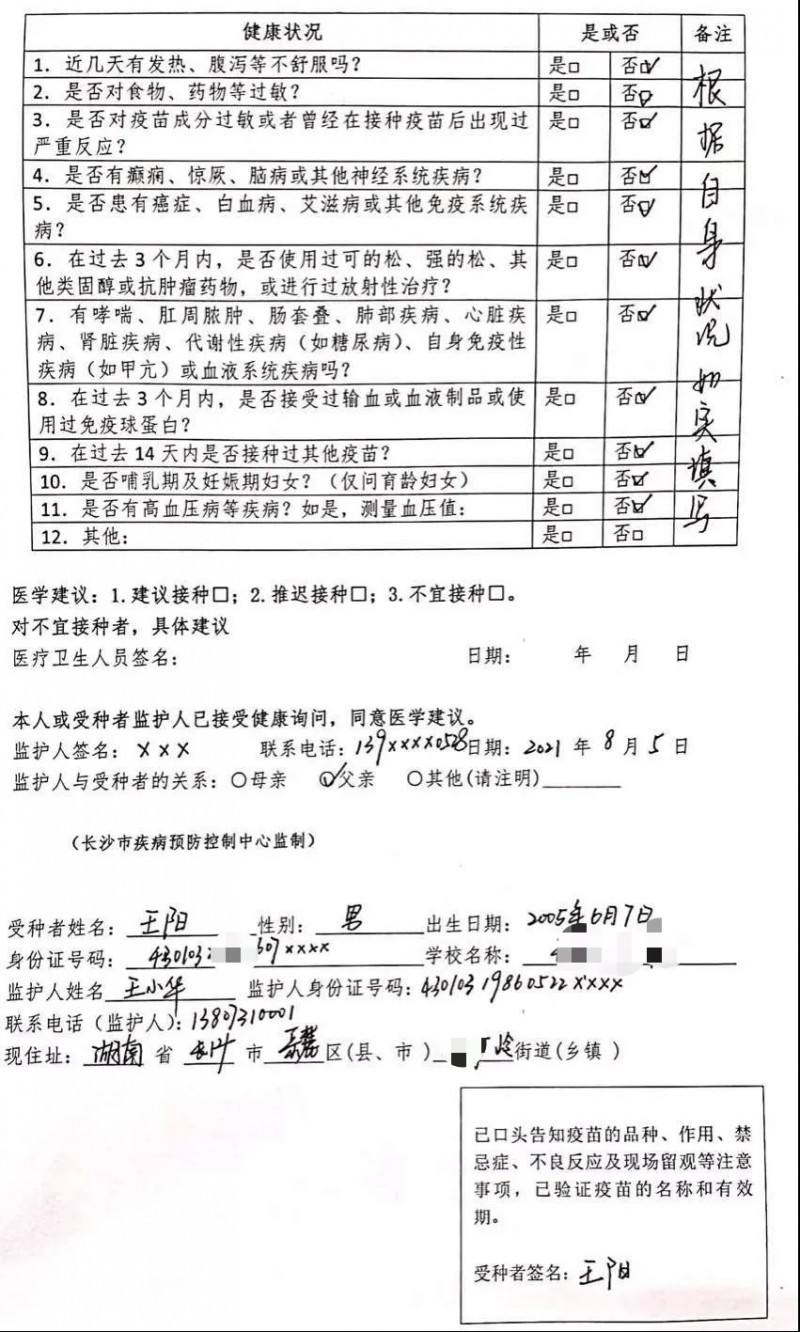 健康状况 是或否 备注
1. 近几天有发热、腹泻等不舒服吗? 是□ 否□✓
2. 是否对食物、药物等过敏? 是□ 否□✓
3. 是否对疫苗成分过敏或者曾经在接种疫苗后出现过
严重反应? 是□ 否□✓
4. 是否有癫痫、惊厥、脑病或其他神经系统疾病? 是□ 否□✓
5. 是否患有癌症、白血病、艾滋病或其他免疫系统疾
病? 是□ 否□✓
6. 在过去 3 个月内，是否使用过可的松、强的松、其
他类固醇或抗肿瘤药物，或进行过放射性治疗? 是□ 否□✓
7. 有哮喘、肛周脓肿、肠套叠、肺部疾病、心脏疾
病、肾脏疾病、代谢性疾病（如糖尿病）、自身免疫性
疾病（如甲亢）或血液系统疾病吗? 是□ 否□✓
8. 在过去 3 个月内，是否接受过输血或血液制品或使
用过免疫球蛋白? 是□ 否□✓
9. 在过去 14 天内是否接种过其他疫苗? 是□ 否□✓
10. 是否哺乳期及妊娠期妇女? (仅问育龄妇女) 是□ 否□✓
11. 是否有高血压病等疾病? 如是, 测量血压值: 是□ 否□✓
12. 其他: 是□ 否□
根据自身状况如实填写
医学建议: 1. 建议接种□; 2. 推迟接种□; 3. 不宜接种□。
对不宜接种者，具体建议
医疗卫生人员签名: 日期: 年 月 日
本人或受种者监护人已接受健康询问，同意医学建议。
监护人签名: ××× 联系电话: 139××××0528 日期: 2021 年 8 月 5 日
监护人与受种者的关系: ○母亲 ○✓父亲 ○其他(请注明)
(长沙市疾病预防控制中心监制)
受种者姓名: 王阳 性别: 男 出生日期: 2005年6月7日
身份证号码: 430103 607×××× 学校名称:
监护人姓名 王小华 监护人身份证号码: 430103 19860522 ××××
联系电话 (监护人): 13807310001
现住址: 湖南 省 长沙 市 岳麓 区(县、市) 街道(乡镇)
已口头告知疫苗的品种、作用、禁
忌症、不良反应及现场留观等注意
事项，已验证疫苗的名称和有效
期。
受种者签名: 王阳